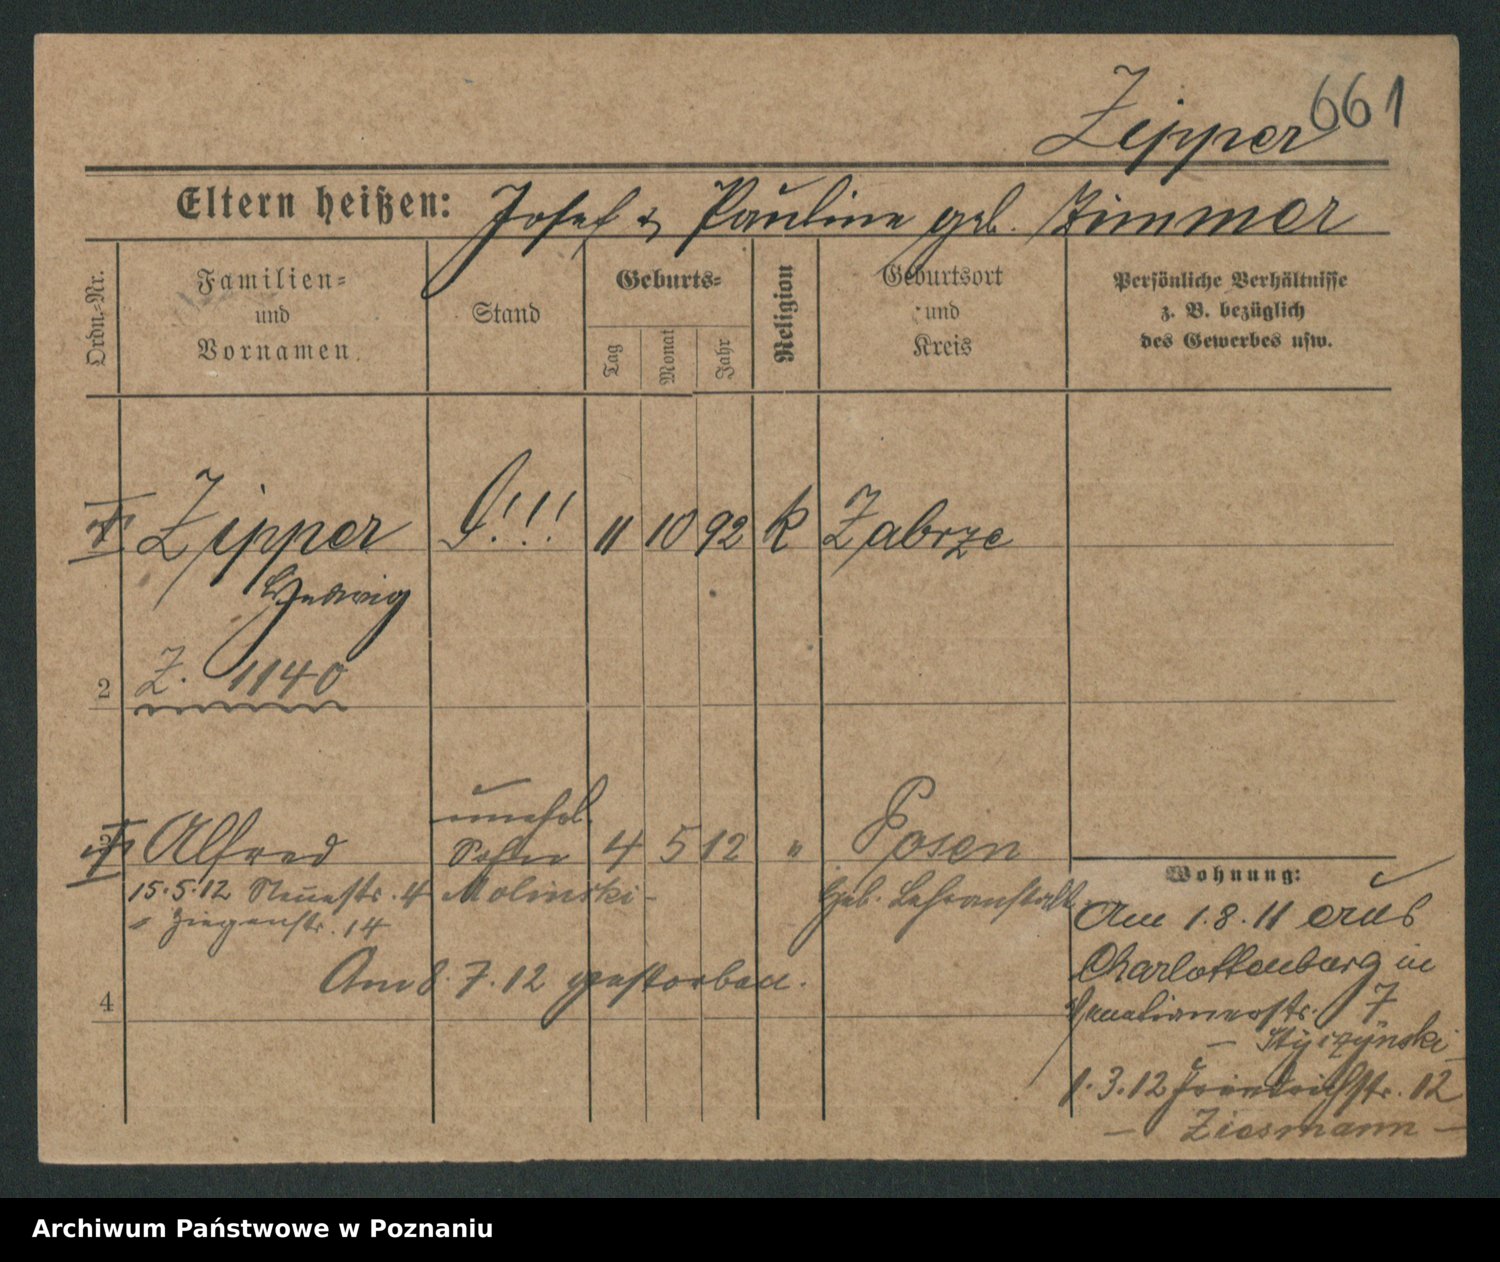 Zipper 661
Eltern heißen: Josef & Pauline geb. Zimmer
Ordn.-Nr.
Familien=
und
Vornamen.
Stand
Geburts=
Tag
Monat
Jahr
Religion
Geburtsort
und
Kreis
Persönliche Verhältnisse
z. B. bezüglich
des Gewerbes usw.
Zipper !!! 11 10 92 k Zabrze
Hedwig
2 Z. 1140
unehel.
3 Alfred Sohn 4 5 12 " Posen
15.5.12 Neuestr. 4 Molinski - Geb. Lehranstalt
" Ziegenstr. 14
Am 8.7.12 gestorben.
4
Wohnung:
Am 1.8.11 aus
Charlottenburg in
7
- Styczynski -
1.3.12 Friedrichstr. 12
- Ziesmann -
Archiwum Państwowe w Poznaniu